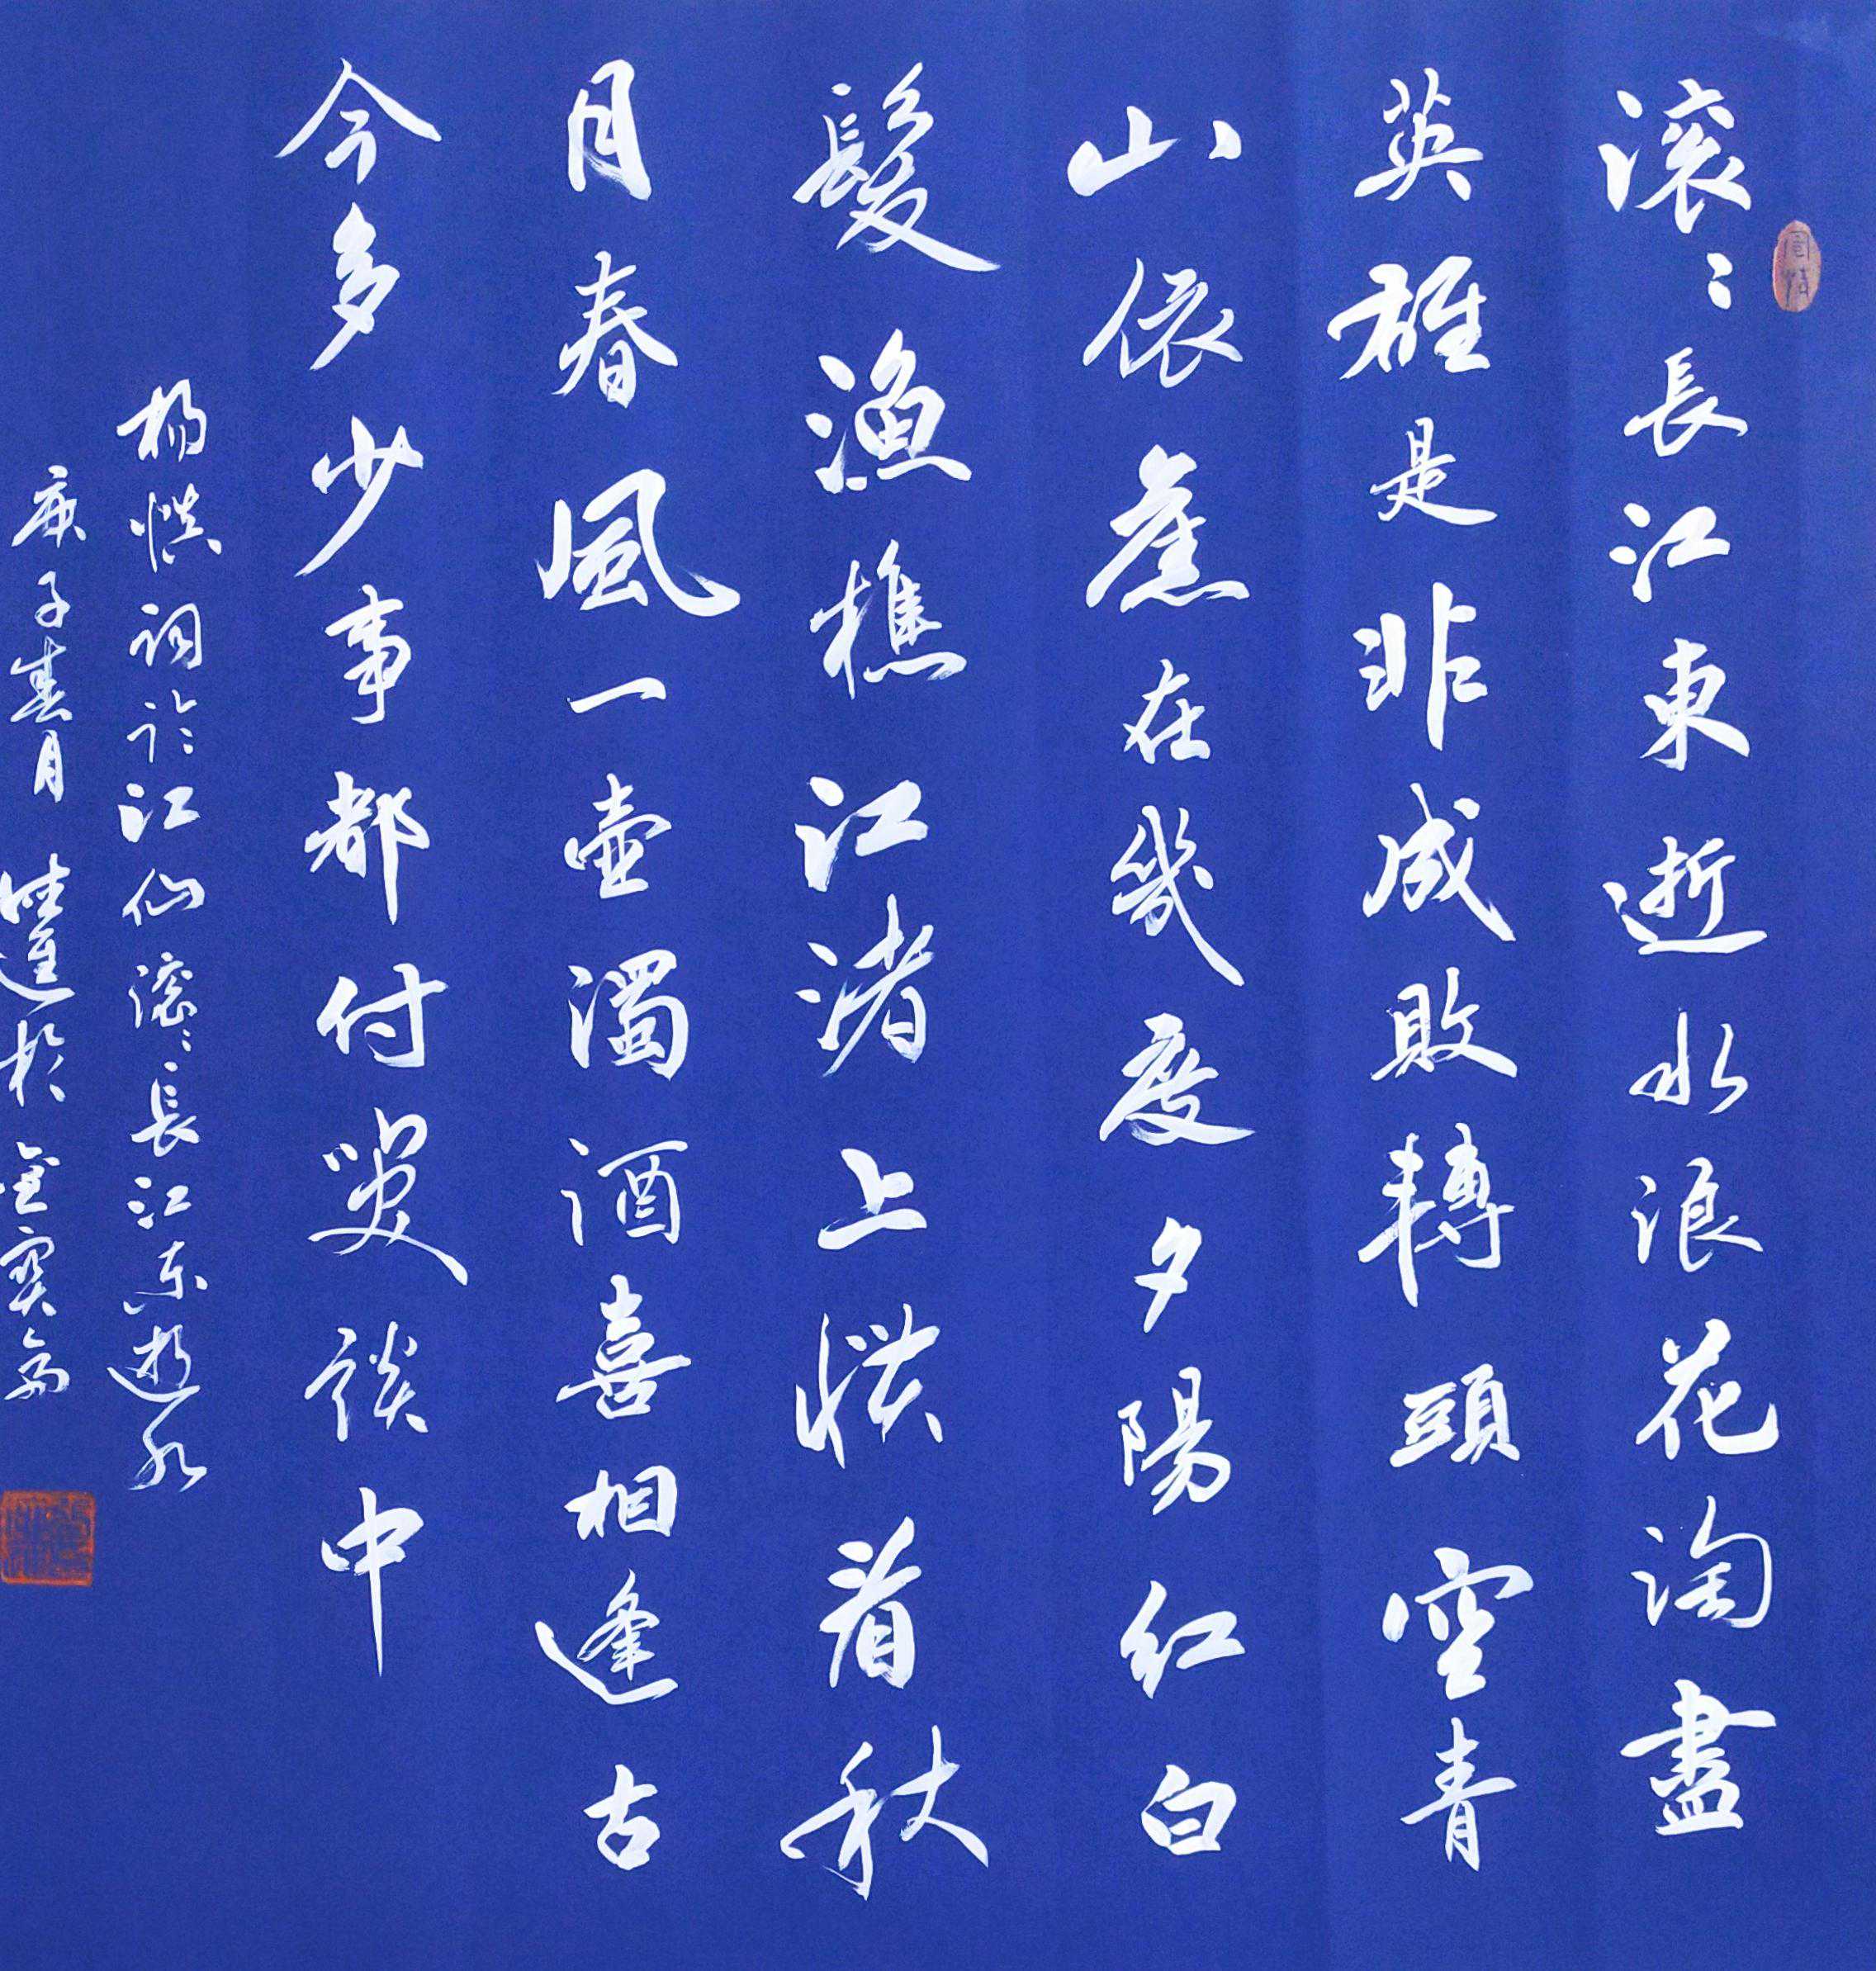 滚〻長江東逝水浪花淘盡
英雄是非成敗轉頭空青
山依舊在幾度夕陽紅白
髮漁樵江渚上慣看秋
月春風一壺濁酒喜相逢古
今多少事都付笑談中
楊慎词 江仙滚〻長江东逝水
庚子春月 於 寶斋